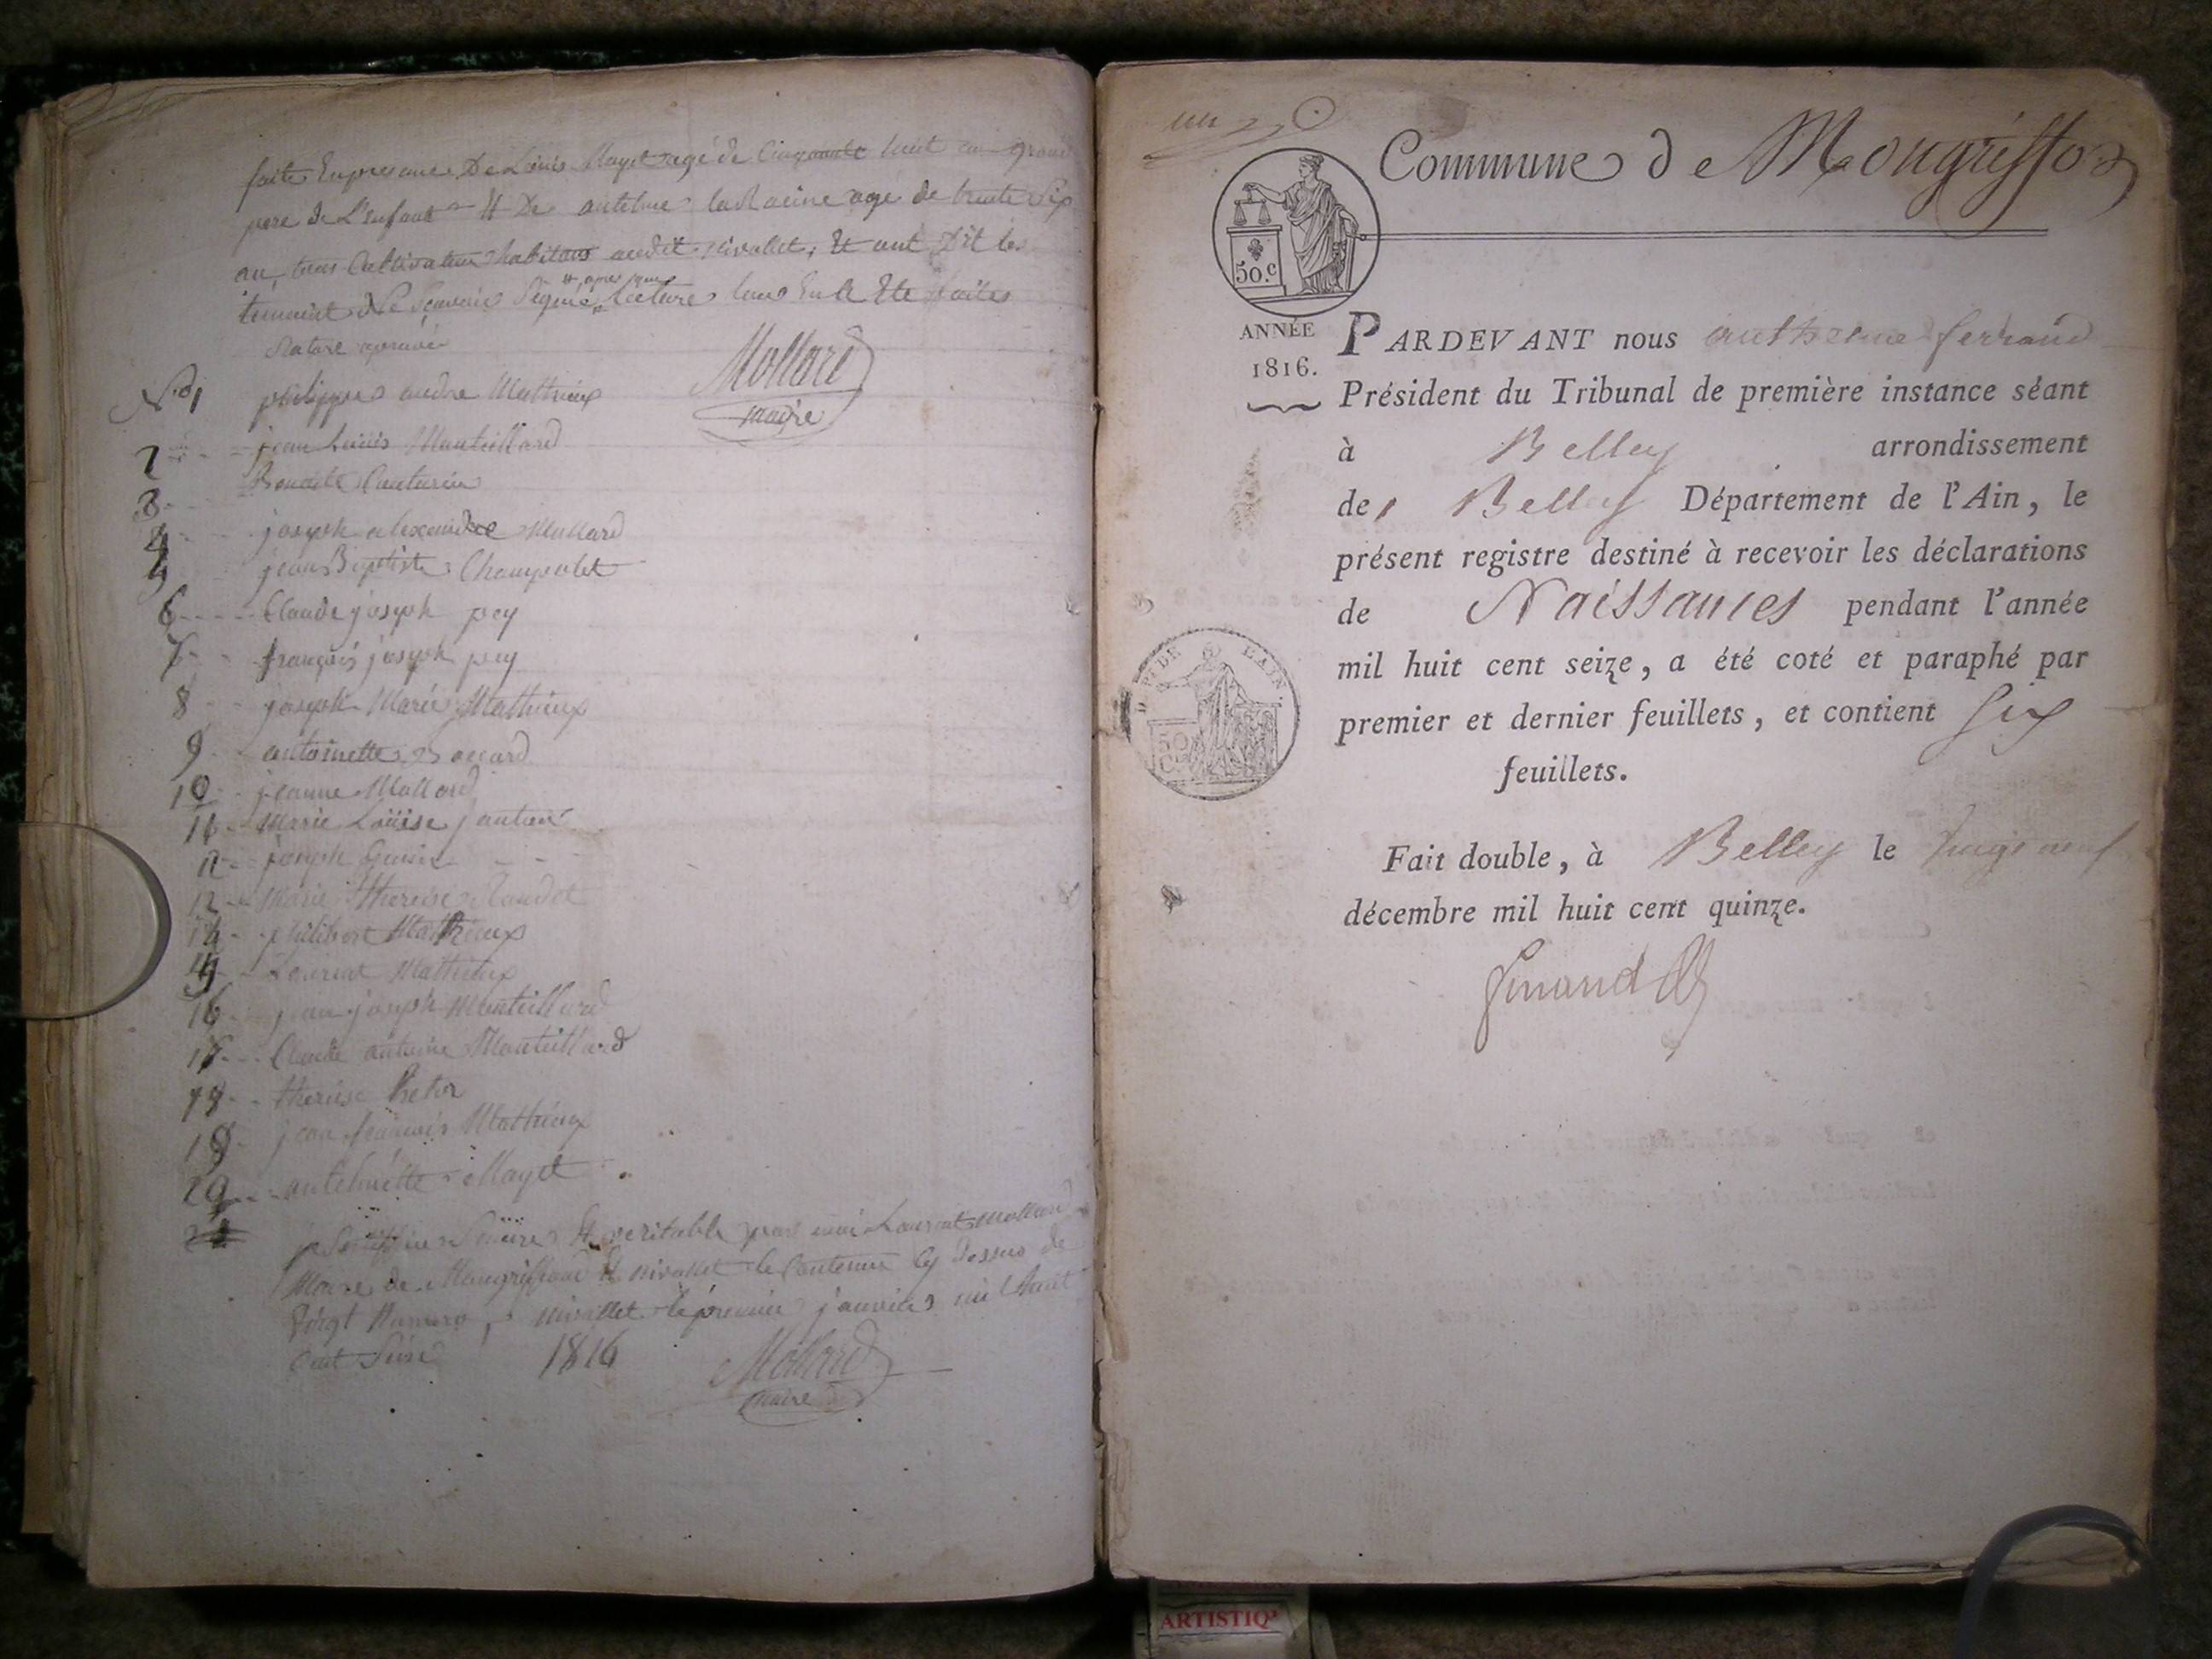 faite En presance De Louis Mayet agé de Cinquante huit ans grand
pere de L'enfant Et De antelme laRacine age de trante Six
an, tous Cultivateur habitans audit nivollet, Et ont Dit les
temoint Ne Scavoir Signié, Lecture leur En A Ete faites
Rature aprouvée
Mollard
maire
No 1 philippe andre Mathieux
2 jean Louis Manteillard
3 Benoite Couturier
4 joseph alexandre Mollard
5 jean Baptiste Champolet
6 Claude joseph pey
7 françois joseph pey
8 joseph Marie Mathieux
9 antoinette
10 jeanne Mollard
11 Marie Loüise
12 joseph
13 Marie Therese
14 philibert Mathieux
15 Laurent Mathieux
16 jean joseph Manteillard
17 Claude antoine Manteillard
18 therese
19 jean françois Mathieux
20 antelmette Mayet
je Sertiffie Sincire Et veritable par moi Laurant Mollard
Maire de Mongriffond Et nivollet le Contenue Cy Dessus de
Vingt Numero, nivollet le premier janvier mil huit
Cent Seise 1816
Mollard
maire
un
Commune de Mongriffon
50.c
ANNÉE
1816.
PARDEVANT nous anthelme ferrand
Président du Tribunal de première instance séant
à Belley arrondissement
de Belley Département de l'Ain, le
présent registre destiné à recevoir les déclarations
de Naissances pendant l'année
mil huit cent seize, a été coté et paraphé par
premier et dernier feuillets, et contient six
feuillets.
DEPT DE L'AIN
50
C
Fait double, à Belley le vingt neuf
décembre mil huit cent quinze.
ferrand
ARTISTIQ